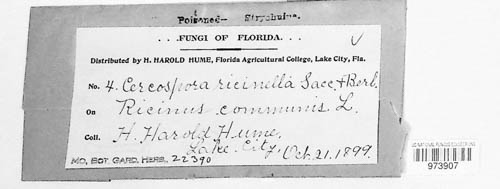 Poisoned – Strychnine.
..FUNGI OF FLORIDA...
Distributed by H. HAROLD HUME, Florida Agricultural College, Lake City, Fla.
No. 4. Cercospora ricinella Sacc. & Berl.
On Ricinus communis L.
Coll. H. Harold Hume,
Lake City, Oct. 21. 1899.
MO. BOT. GARD. HERB. 22390
US NATIONAL FUNGUS COLLECTIONS
973907